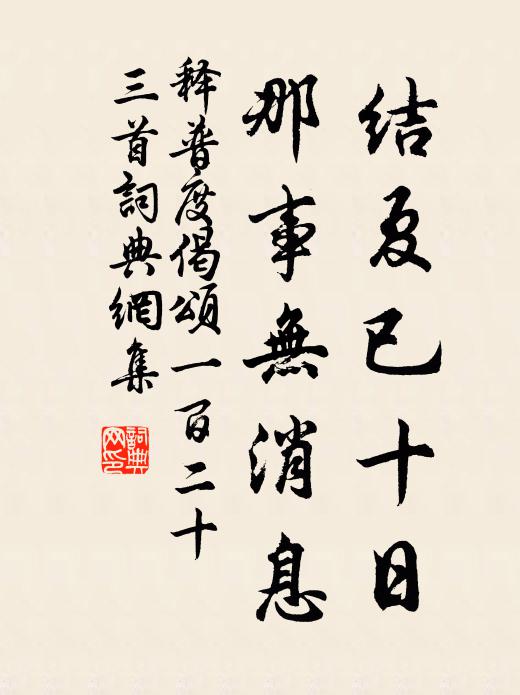 结夏已十日
那事無消息
释普度偈頌一百二十
三首詞典網集
詞典網印